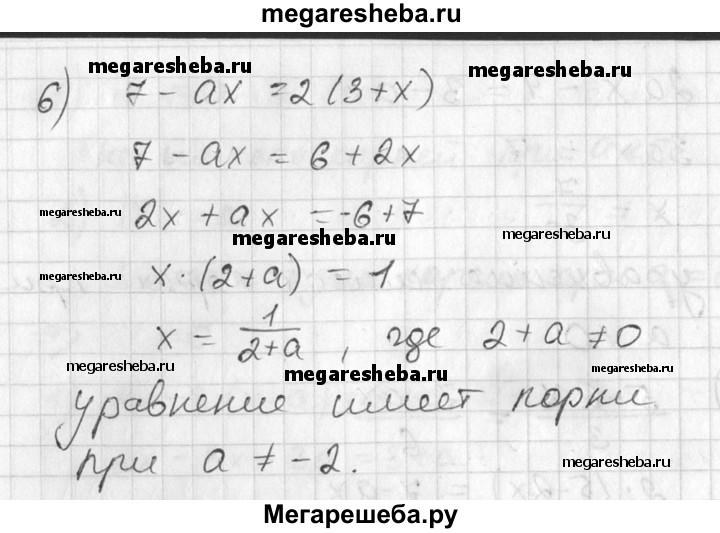 megaresheba.ru
megaresheba.ru
megaresheba.ru
б) 7 - ax = 2 (3 + x)
7 - ax = 6 + 2x
megaresheba.ru
2x + ax = -6 + 7
megaresheba.ru
megaresheba.ru
megaresheba.ru
x · (2 + a) = 1
x = 1/(2+a) , где 2 + a ≠ 0
megaresheba.ru
megaresheba.ru
megaresheba.ru
уравнение имеет корни
при a ≠ -2.
megaresheba.ru
Мегарешеба.ру